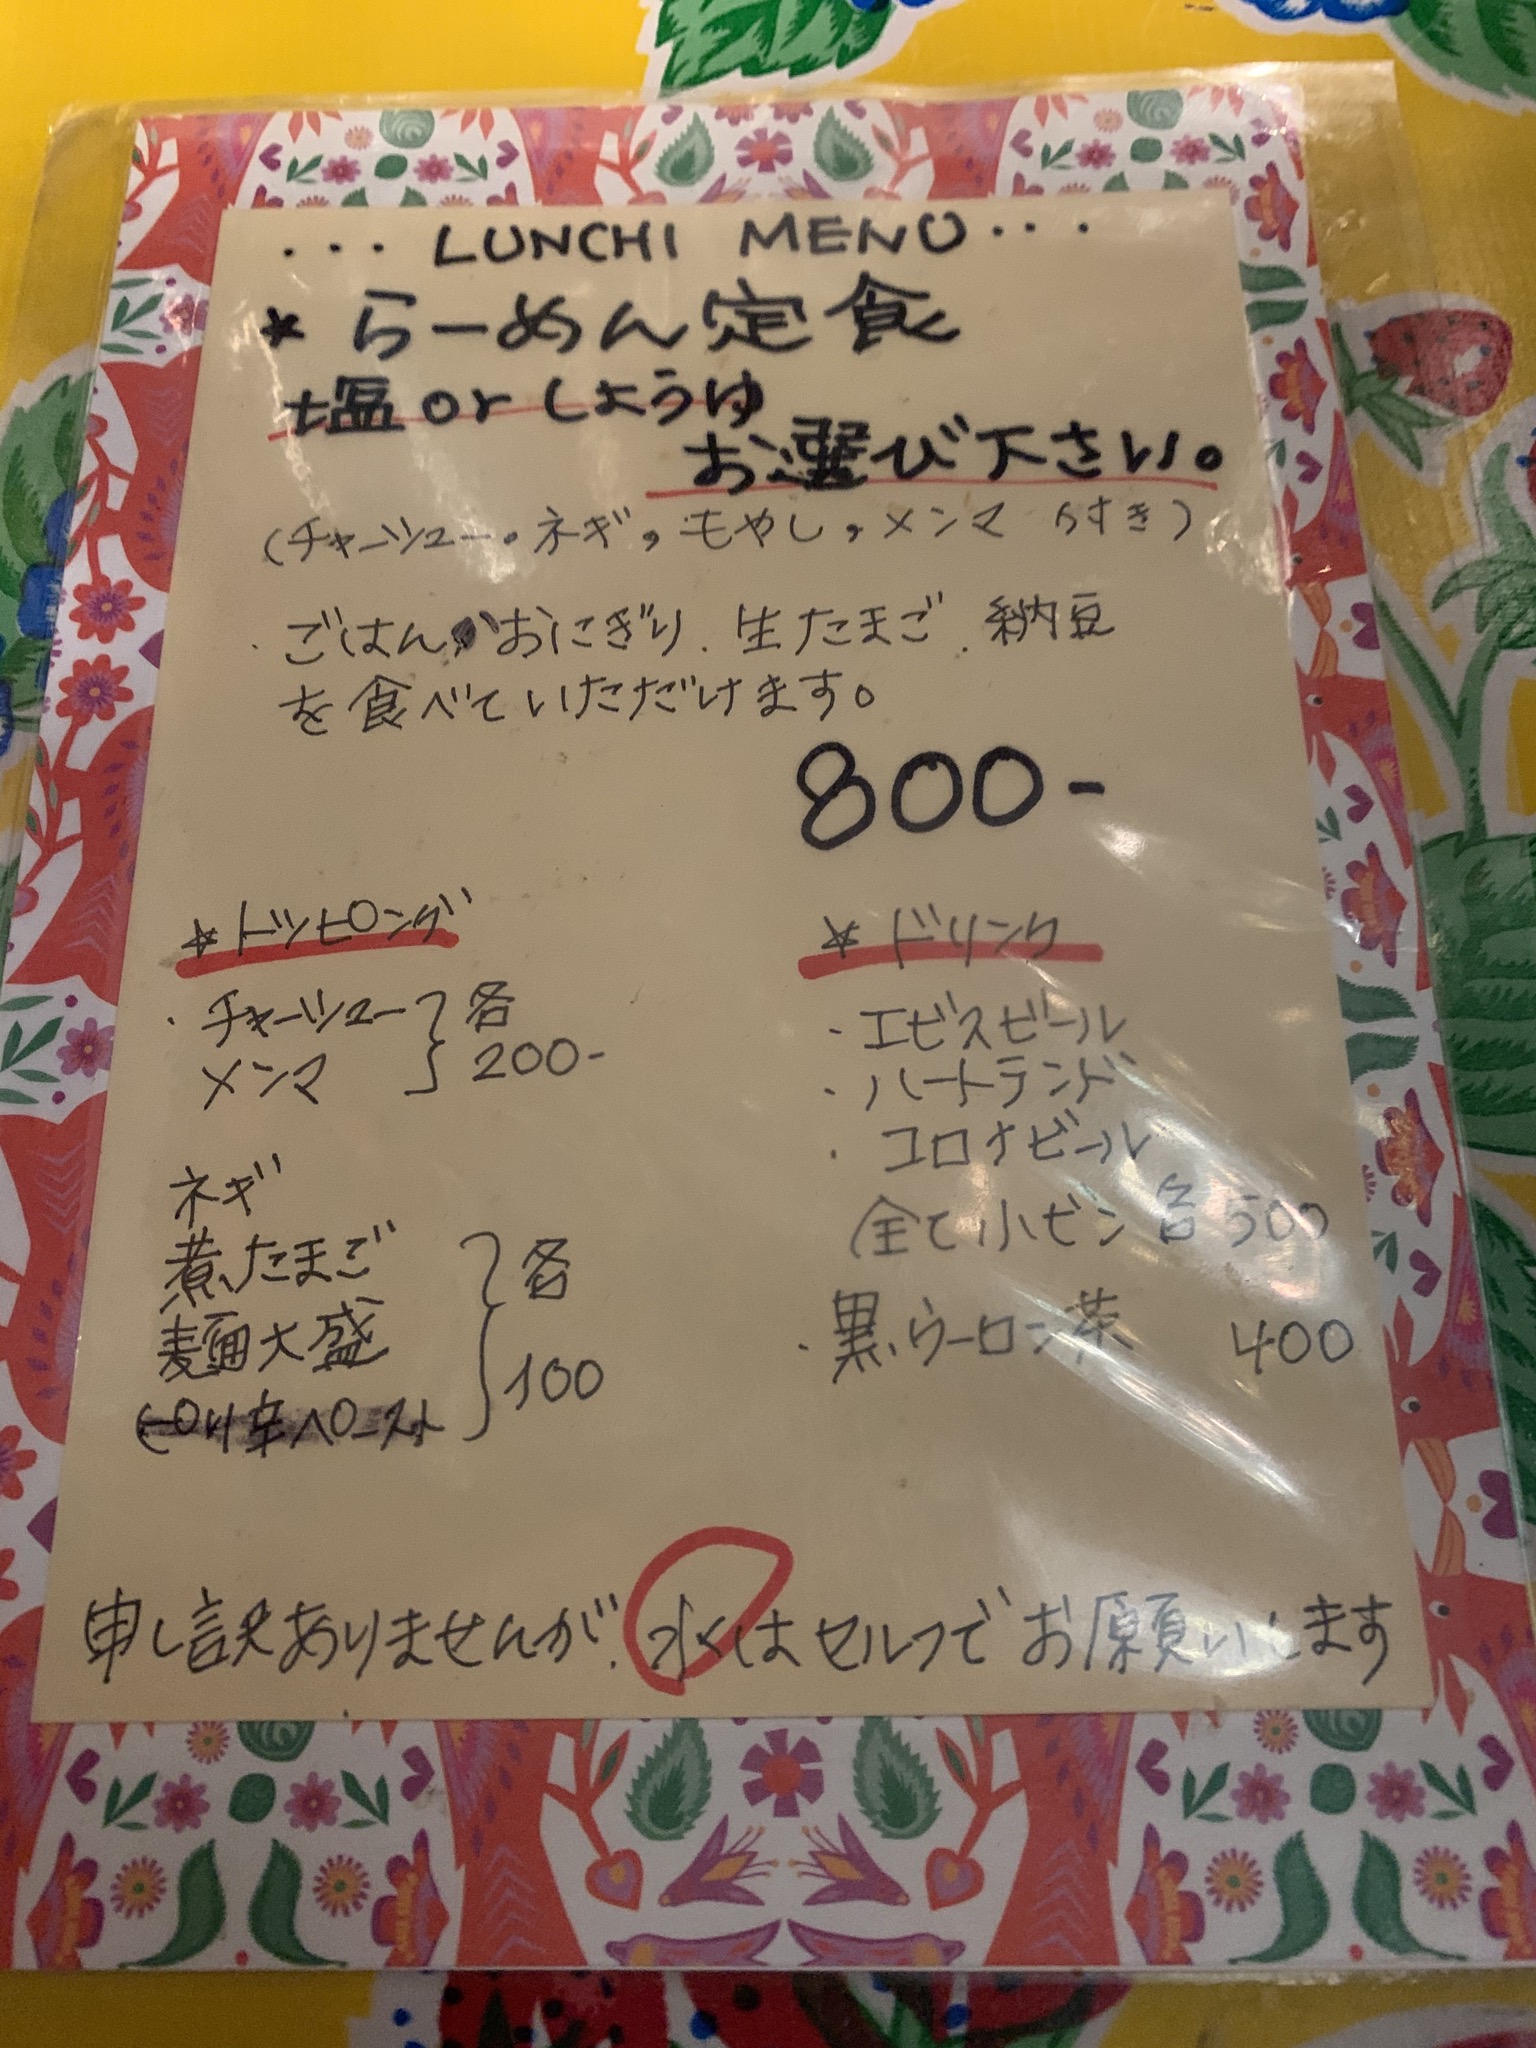 ・・・ LUNCHI MENU ・・・
* らーめん定食
塩 or しょうゆ
お選び下さい。
(チャーシュー、ネギ、もやし、メンマ
・ごはん おにぎり、生たまご、納豆
を食べていただけます。
800-
☆トッピング
・チャーシュー
メンマ
各
200-
ネギ
煮たまご
麺大盛
ピリ辛ペースト
各
100
☆ドリンク
・エビスビール
・ハートランド
・コロナビール
全て小ビン 各 500
・黒ウーロン茶 400
申し訳ありませんが、水はセルフでお願いします